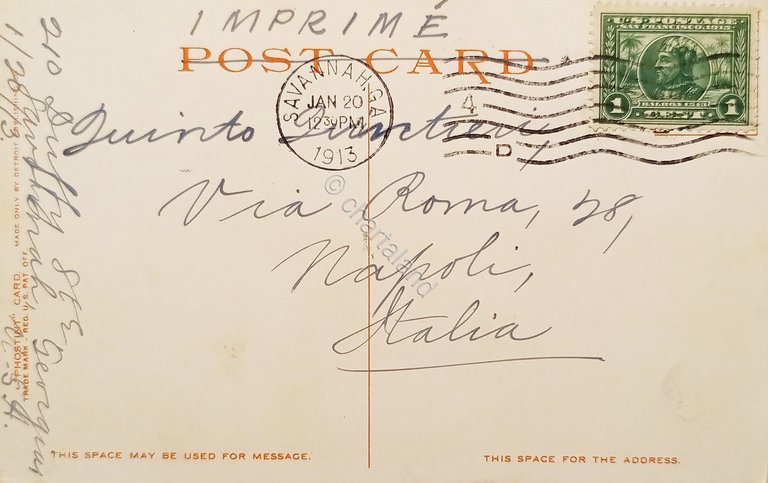 IMPRIMÉ
POST CARD
U.S. POSTAGE
SAN FRANCISCO, 1915
BALBOA 1513
1 CENT 1
SAVANNAH, GA.
JAN 20
12 30 PM
1913
4
D
Quinto
Via Roma, 28,
Napoli,
Italia
210 Duffy St E
Savannah, Georgia
U.S.A.
1/20/13.
"PHOSTINT" CARD. MADE ONLY BY DETROIT
TRADE MARK REG. U.S. PAT. OFF.
© chartaland
THIS SPACE MAY BE USED FOR MESSAGE.
THIS SPACE FOR THE ADDRESS.